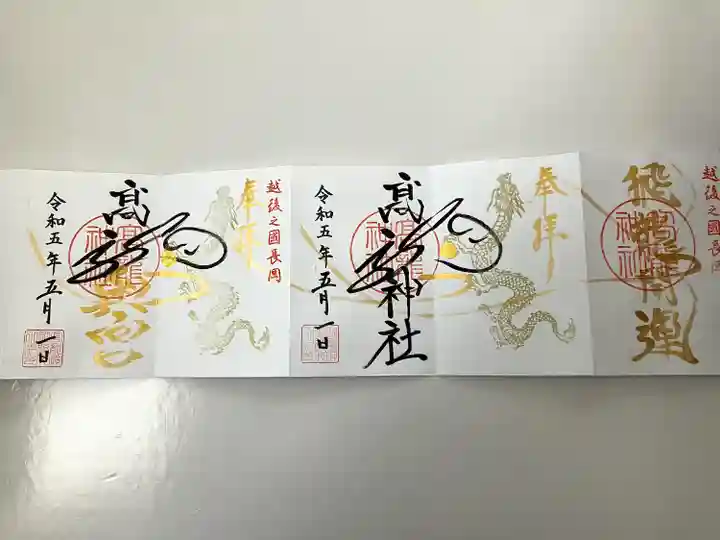 越後之國長岡
飛龍開運
高龍神社
奉拝
高龍神社
令和五年五月一日
越後之國長岡
奉拝
高龍
高龍神社
令和五年五月一日